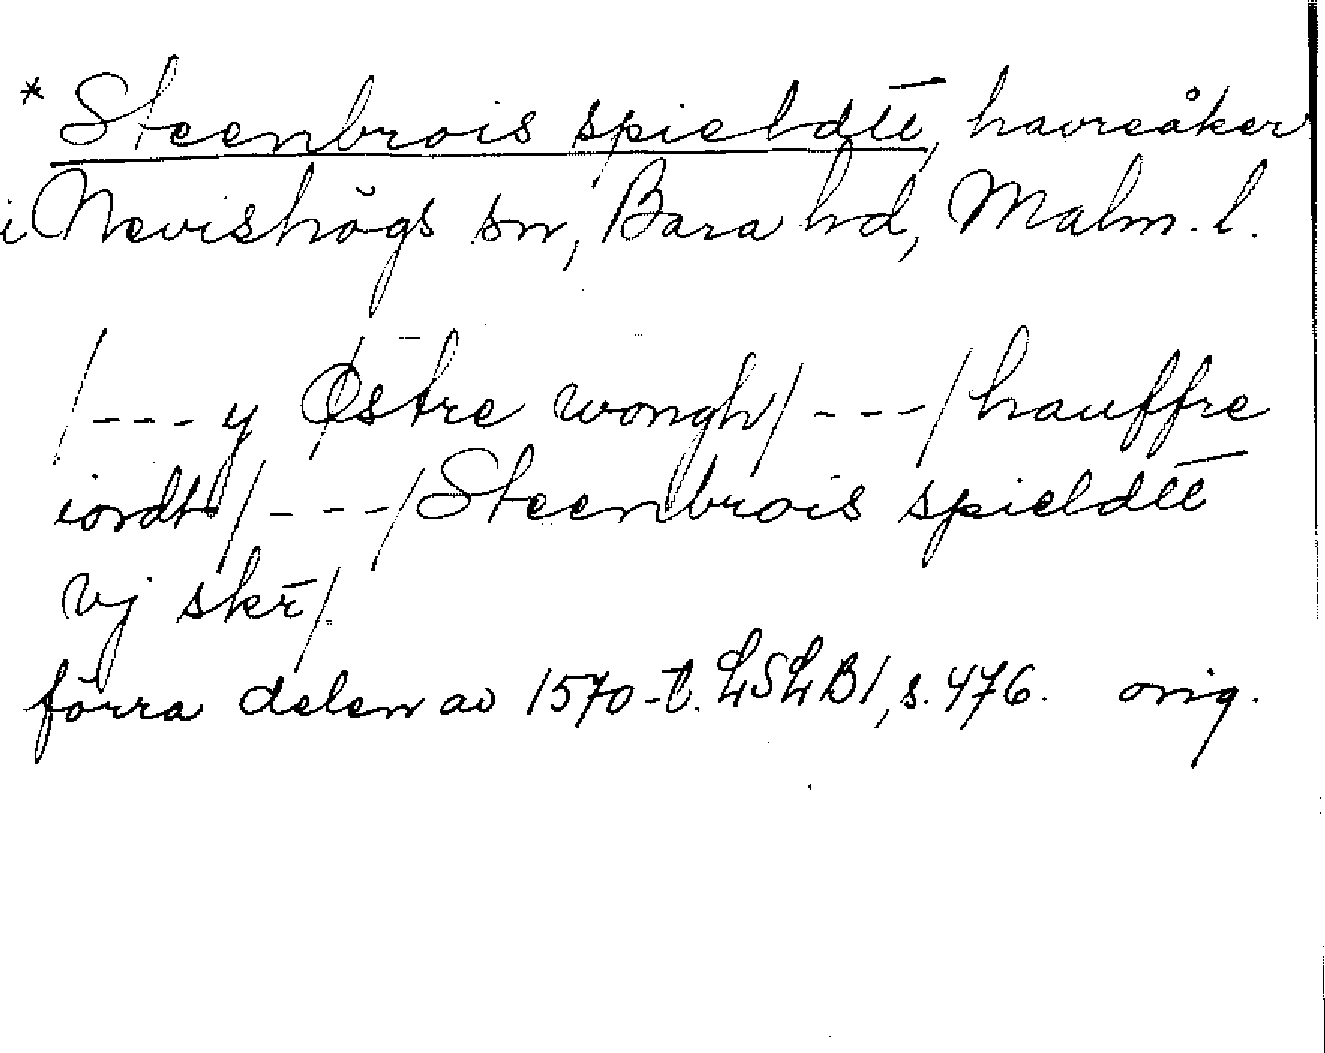 * Steenbrois spieldtē, havreåker
i Nevishögs sn, Bara hd, Malm. l.
/---y Østre wongh/---/hauffre
iordt/---/Steenbrois spieldtē
vj skr̄/.
förra delen av 1570-t. LSLB1, s. 476. orig.